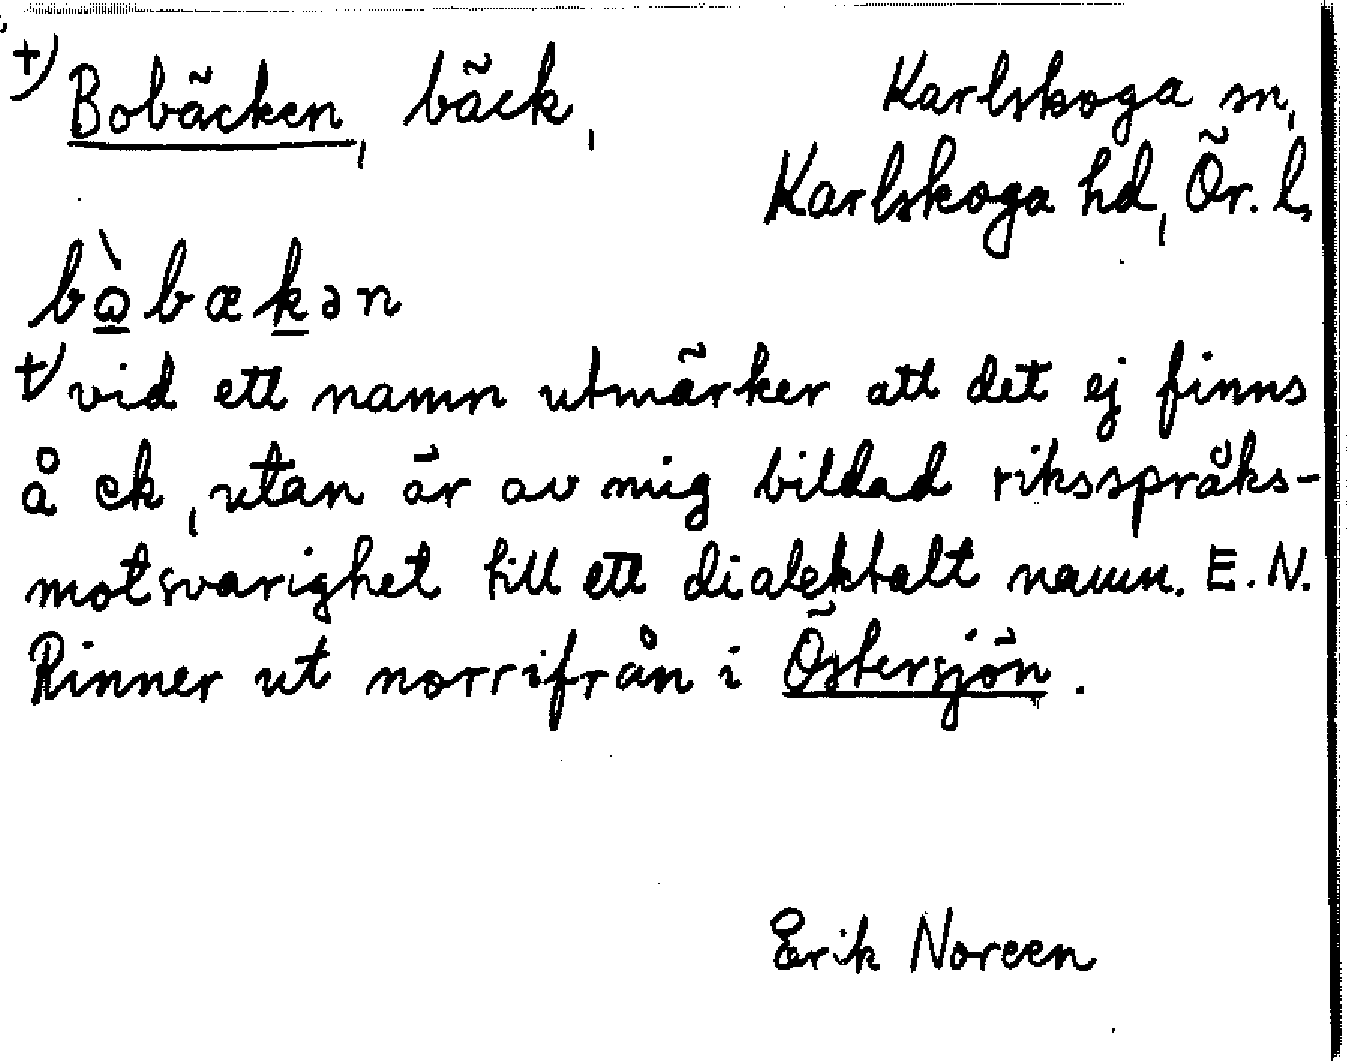 †) Bobäcken, bäck, Karlskoga sn,
Karlskoga hd, Ör. l.
bò̱bæḵən
†) vid ett namn utmärker att det ej finns
å ek, utan är av mig bildad riksspråks-
motsvarighet till ett dialektalt namn. E. N.
Rinner ut norrifrån i Östersjön.
Erik Noreen